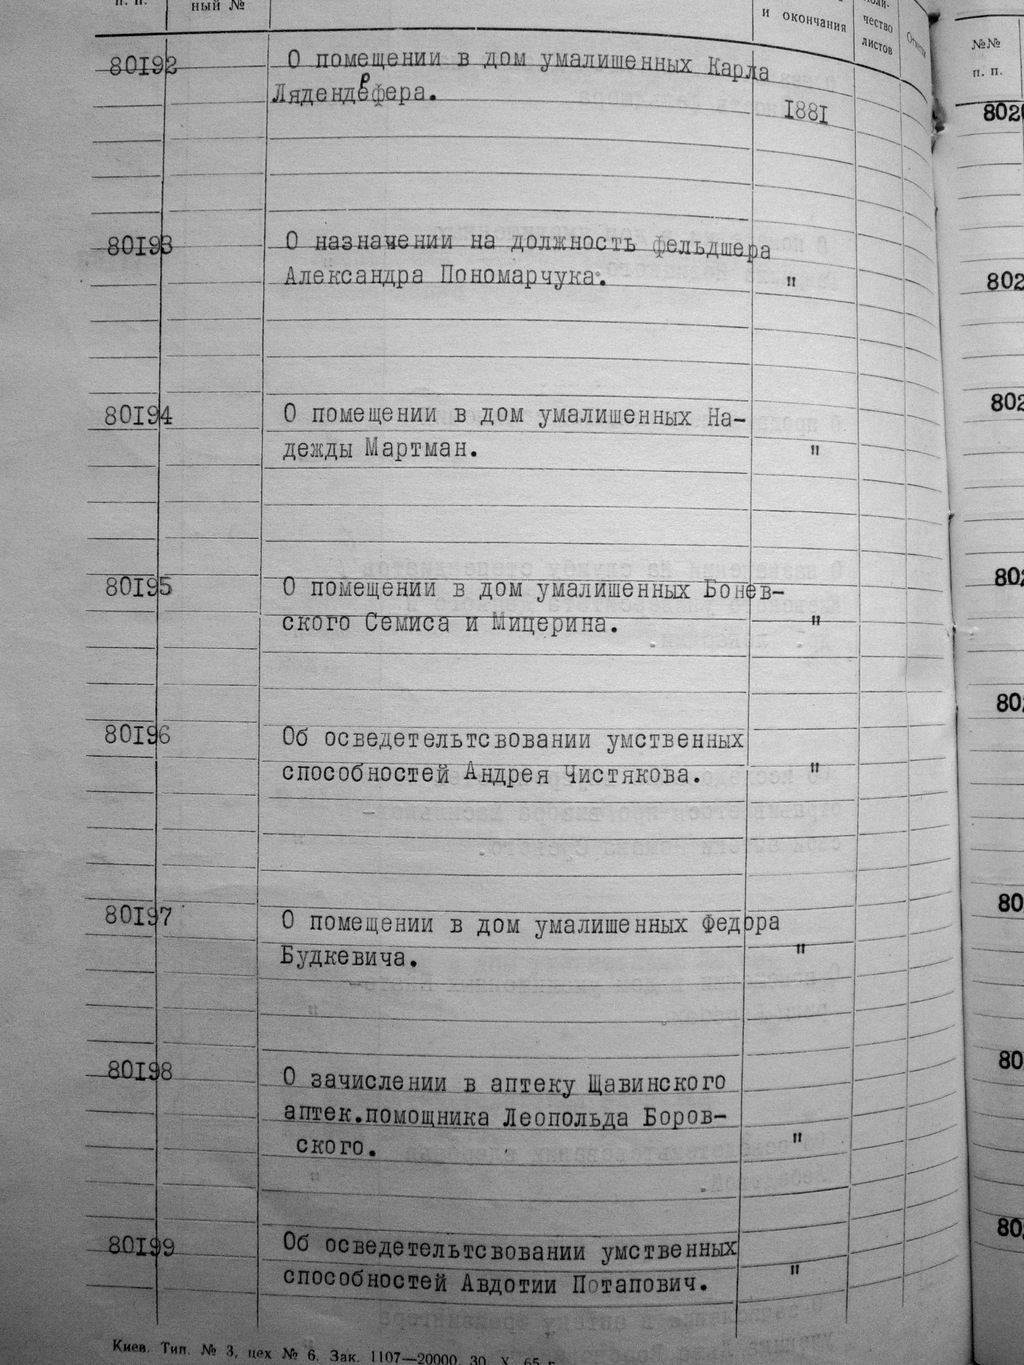 п. п.
ный №
и окончания
чество
листов
№№
п. п.
80192
О помещении в дом умалишенных Карла
Лядендерфера.
1881
80193
О назначении на должность фельдшера
Александра Пономарчука.
"
80194
О помещении в дом умалишенных На-
дежды Мартман.
"
80195
О помещении в дом умалишенных Бонев-
ского Семиса и Мицерина.
"
80196
Об осведетельтсвовании умственных
способностей Андрея Чистякова.
"
80197
О помещении в дом умалишенных Федора
Будкевича.
"
80198
О зачислении в аптеку Щавинского
аптек.помощника Леопольда Боров-
ского.
"
80199
Об осведетельтсвовании умственных
способностей Авдотии Потапович.
"
Киев. Тип. № 3, цех № 6. Зак. 1107—20000. 30. X. 65 г.